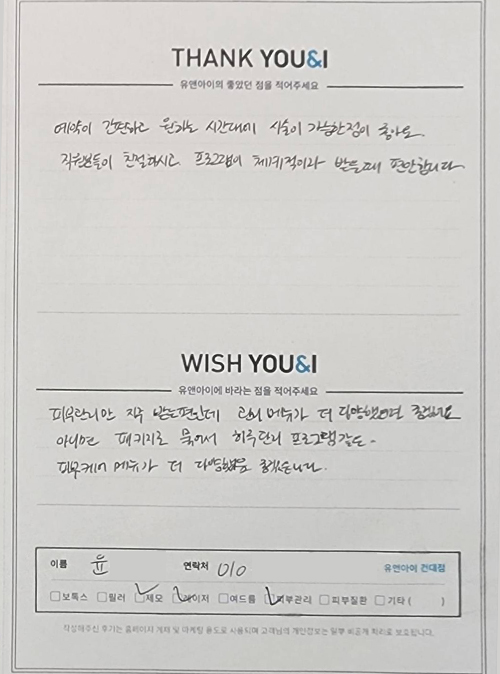 THANK YOU&I
유앤아이의 좋았던 점을 적어주세요
예약이 간편하고 원하는 시간대에 시술이 가능한점이 좋아요.
직원분들이 친절하시고 프로그램이 체계적이라 받을때 편안합니다.
WISH YOU&I
유앤아이에 바라는 점을 적어주세요
피부관리만 자주 받는편인데 관리 메뉴가 더 다양했으면 좋겠어요
아니면 패키지로 묶어서 하루단위 프로그램같은~
피부케어 메뉴가 더 다양했음 좋겠습니다.
이름 윤 연락처 010 유앤아이 건대점
보톡스 필러 제모 레이저 여드름 피부관리 피부질환 기타 ( )
작성해주신 후기는 홈페이지 게재 및 마케팅 용도로 사용되며 고객님의 개인정보는 일부 비공개 처리로 보호됩니다.